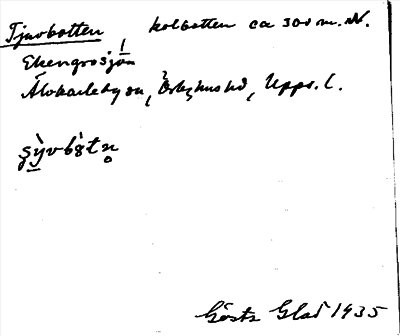 Tjuvbotten, kolbotten ca 300 m. N.
Ekengrossjön
Älvkarleby sn, Örbyhus hd, Upps. l.
Gösta Glad 1935